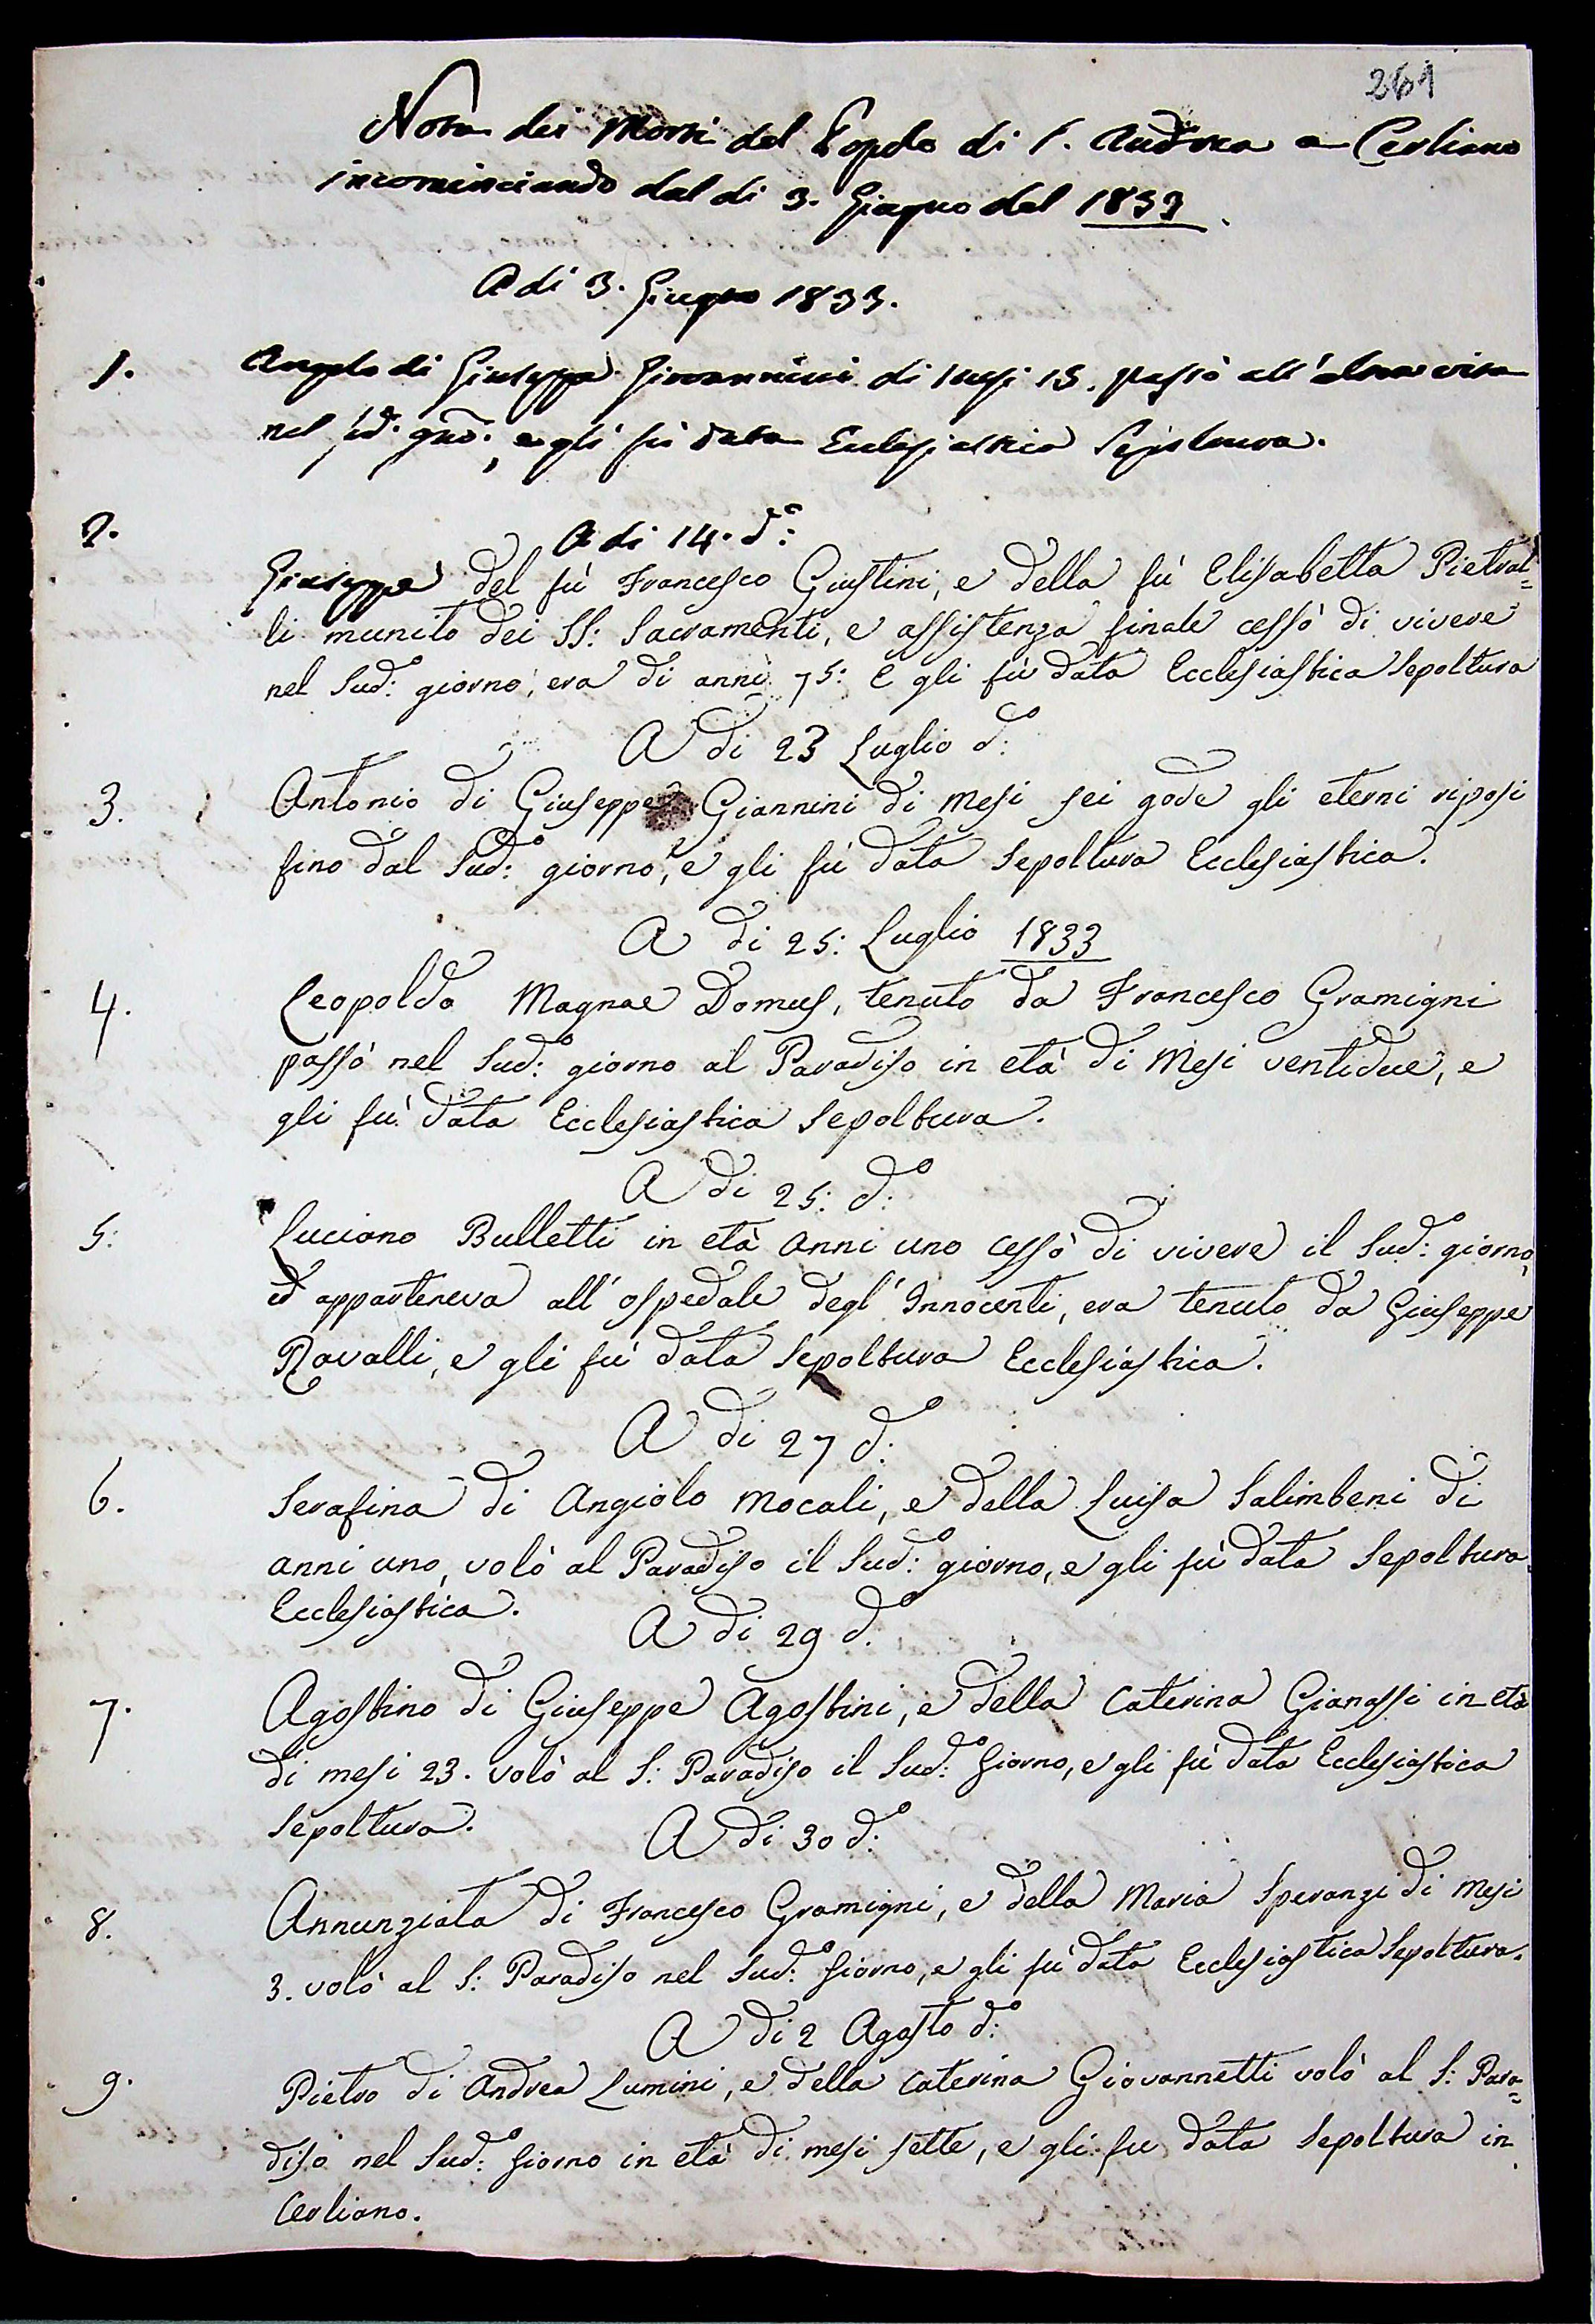 261
Nota dei Morti del Popolo di S. Andrea a Cerliano
incominciando dal di 3. Giugno del 1833.
A di 3. Giugno 1833.
1. Angolo di Giuseppe Giovannini di mesi 15. passò all'altra vita
nel sud. gno., e gli fù data Ecclesiastica Sepoltura.
2. A di 14. d.o
Giuseppe del fù Francesco Giustini, e della fù Elisabetta Pietral=
li munito dei SS: Sacramenti, e assistenza finale cessò di vivere
nel Sud:o giorno, era di anni 75: E gli fù data Ecclesiastica Sepoltura
A di 23 Luglio d:o
3. Antonio di Giuseppe Giannini di mesi sei gode gli eterni riposi
fino dal Sud:o giorno, e gli fù data Sepoltura Ecclesiastica.
A di 25: Luglio 1833
4. Leopoldo Magnae Domus, tenuto da Francesco Gramigni
passò nel Sud:o giorno al Paradiso in età di Mesi ventidue, e
gli fù data Ecclesiastica Sepoltura.
A di 25: d:o
5: Luciano Bulletti in età anni uno cessò di vivere il Sud:o giorno,
ed apparteneva all'ospedale degl'Innocenti, era tenuto da Giuseppe
Ravalli, e gli fù data Sepoltura Ecclesiastica.
A di 27 d:o
6. Serafina di Angiolo Mocali, e della Luisa Salimbeni di
anni uno, volò al Paradiso il Sud:o giorno, e gli fù data Sepoltura
Ecclesiastica.
A di 29 d:o
7. Agostino di Giuseppe Agostini, e della Caterina Gianassi in età
di mesi 23. volò al S: Paradiso il Sud:o Giorno, e gli fù data Ecclesiastica
Sepoltura.
A di 30 d:o
8. Annunziata di Francesco Gramigni, e della Maria Speranzi di Mesi
3. volò al S: Paradiso nel Sud:o Giorno, e gli fù data Ecclesiastica Sepoltura.
A di 2 Agosto d:o
9. Pietro di Andrea Lumini, e della Caterina Giovannetti volò al S: Para=
diso nel Sud:o Giorno in età di mesi sette, e gli fu data Sepoltura in
Cerliano.